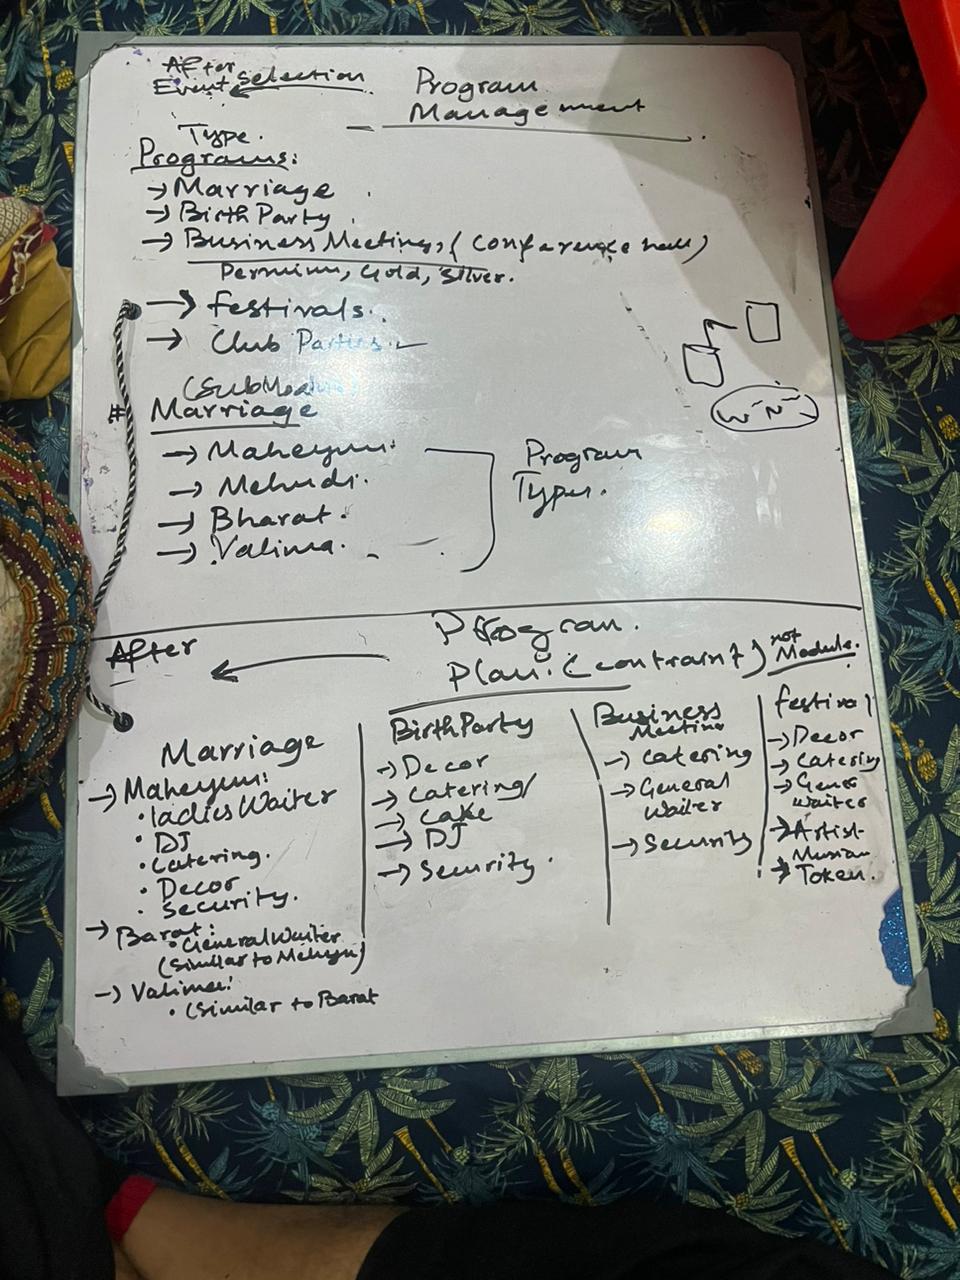 After
Event selection
Program
Management
Type.
Programs:
→ Marriage
→ Birth Party
→ Business Meetings, (Conference hall)
Permium, Gold, Silver.
→ Festivals.
→ Club Parties.
(SubModule)
# Marriage
→ Maheyun:
→ Mehndi.
→ Bharat.
→ Valima.
Program
Types.
Program.
After
Plan: (contraint) not Module.
Marriage
→ Maheyun:
• ladies Waiter
• DJ
• Catering.
• Decor
• Security.
→ Barat:
• General Waiter
(Similar to Meheyn)
→ Valima:
• (Similar to Barat
Birth Party
→ Decor
→ Catering/
→ Cake
→ DJ
→ Security.
Business
Meeting
→ Catering
→ General
Waiter
→ Security
festival
→ Decor
→ Catering
→ Gener
Waiter
→ Artist
→ Token.